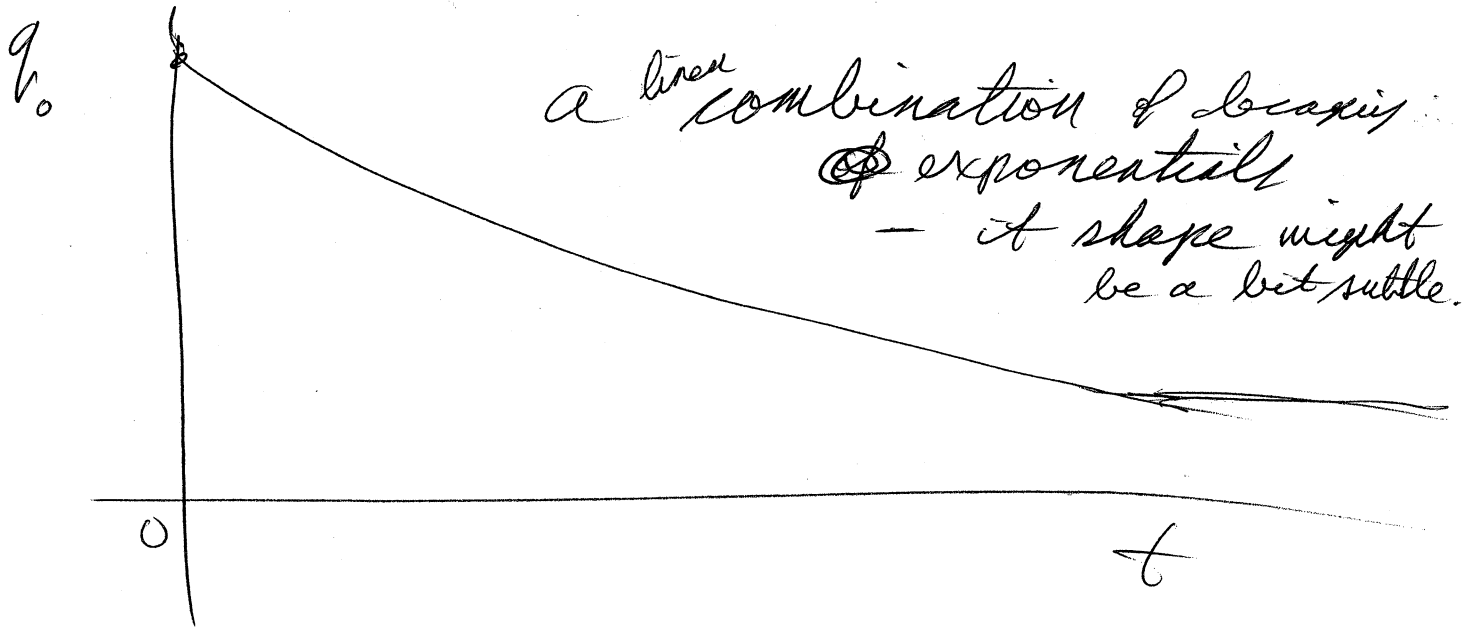 q₀
a linear combination of decaying
exponentials
- it shape might
be a bit subtle.
0
t